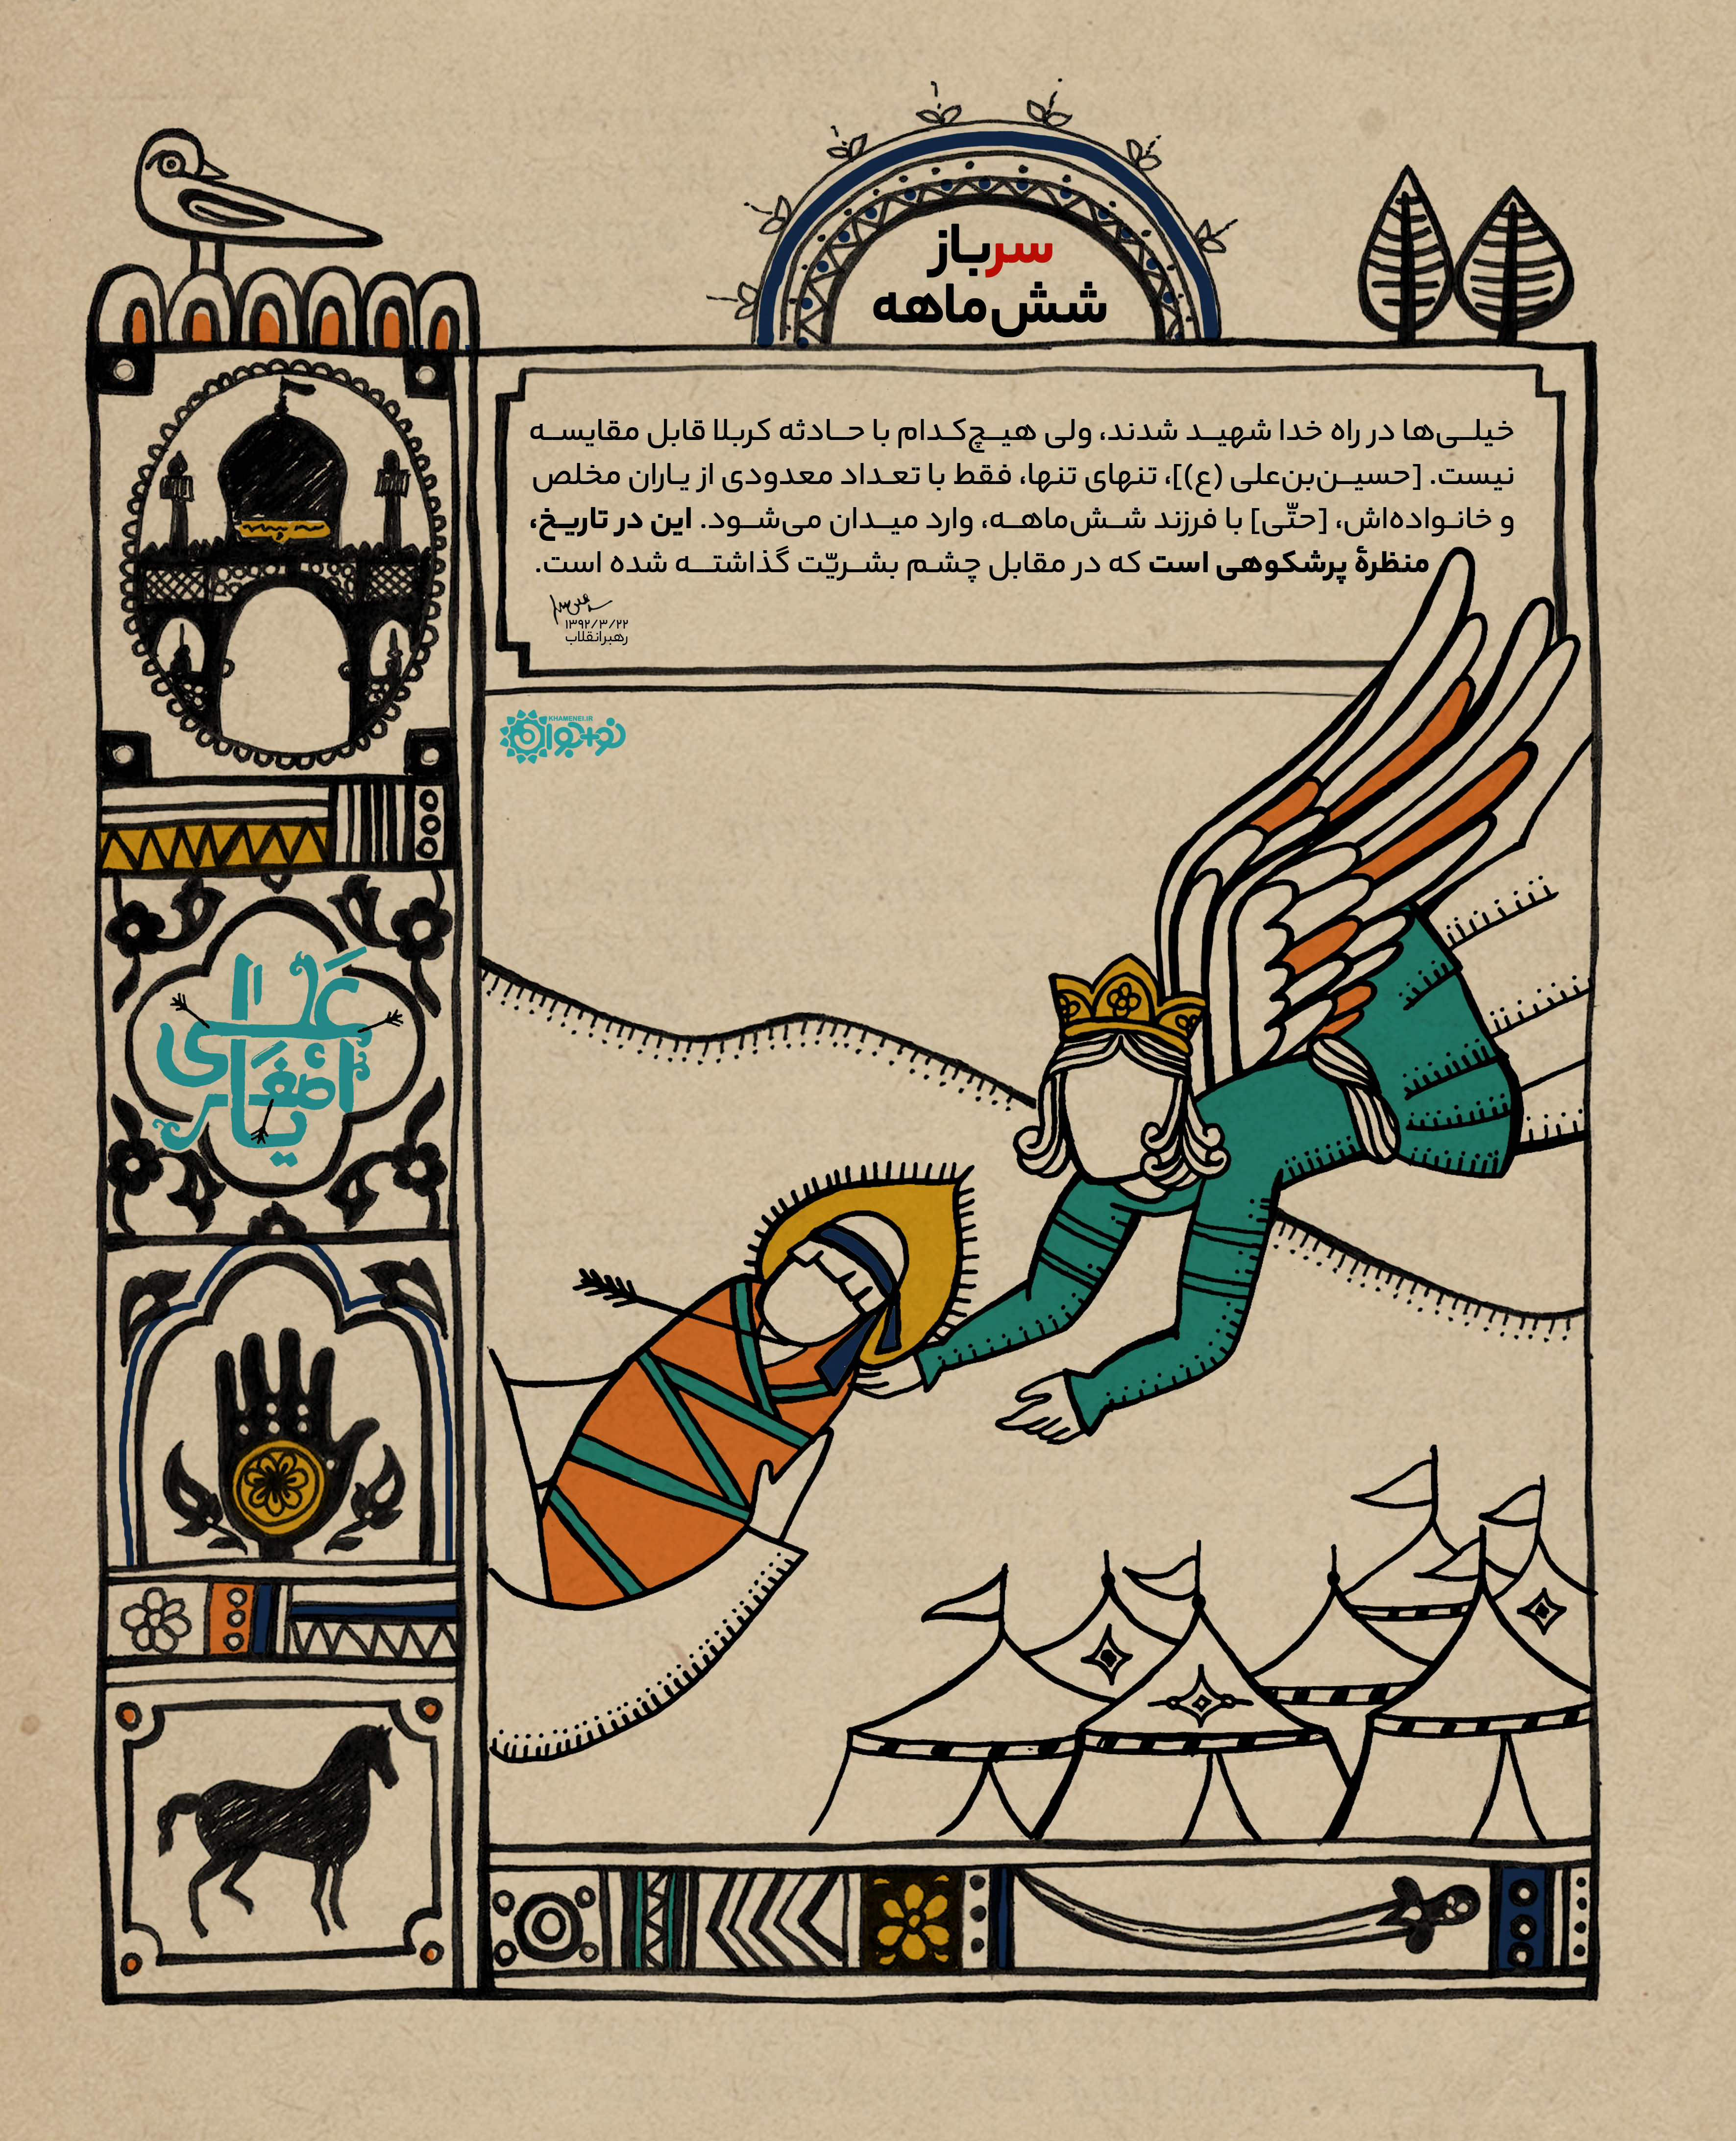 سرباز
شش‌ماهه
خیلی‌ها در راه خدا شهید شدند، ولی هیچ‌کدام با حادثه کربلا قابل مقایسه
نیست. [حسین‌بن‌علی (ع)]، تنهای تنها، فقط با تعداد معدودی از یاران مخلص
و خانواده‌اش، [حتّی] با فرزند شش‌ماهه، وارد میدان می‌شود. این در تاریخ،
منظرهٔ پرشکوهی است که در مقابل چشم بشریّت گذاشته شده است.
۱۳۹۲/۳/۲۲
رهبرانقلاب
KHAMENEI.IR
نوجوان
یا علی
اصغر